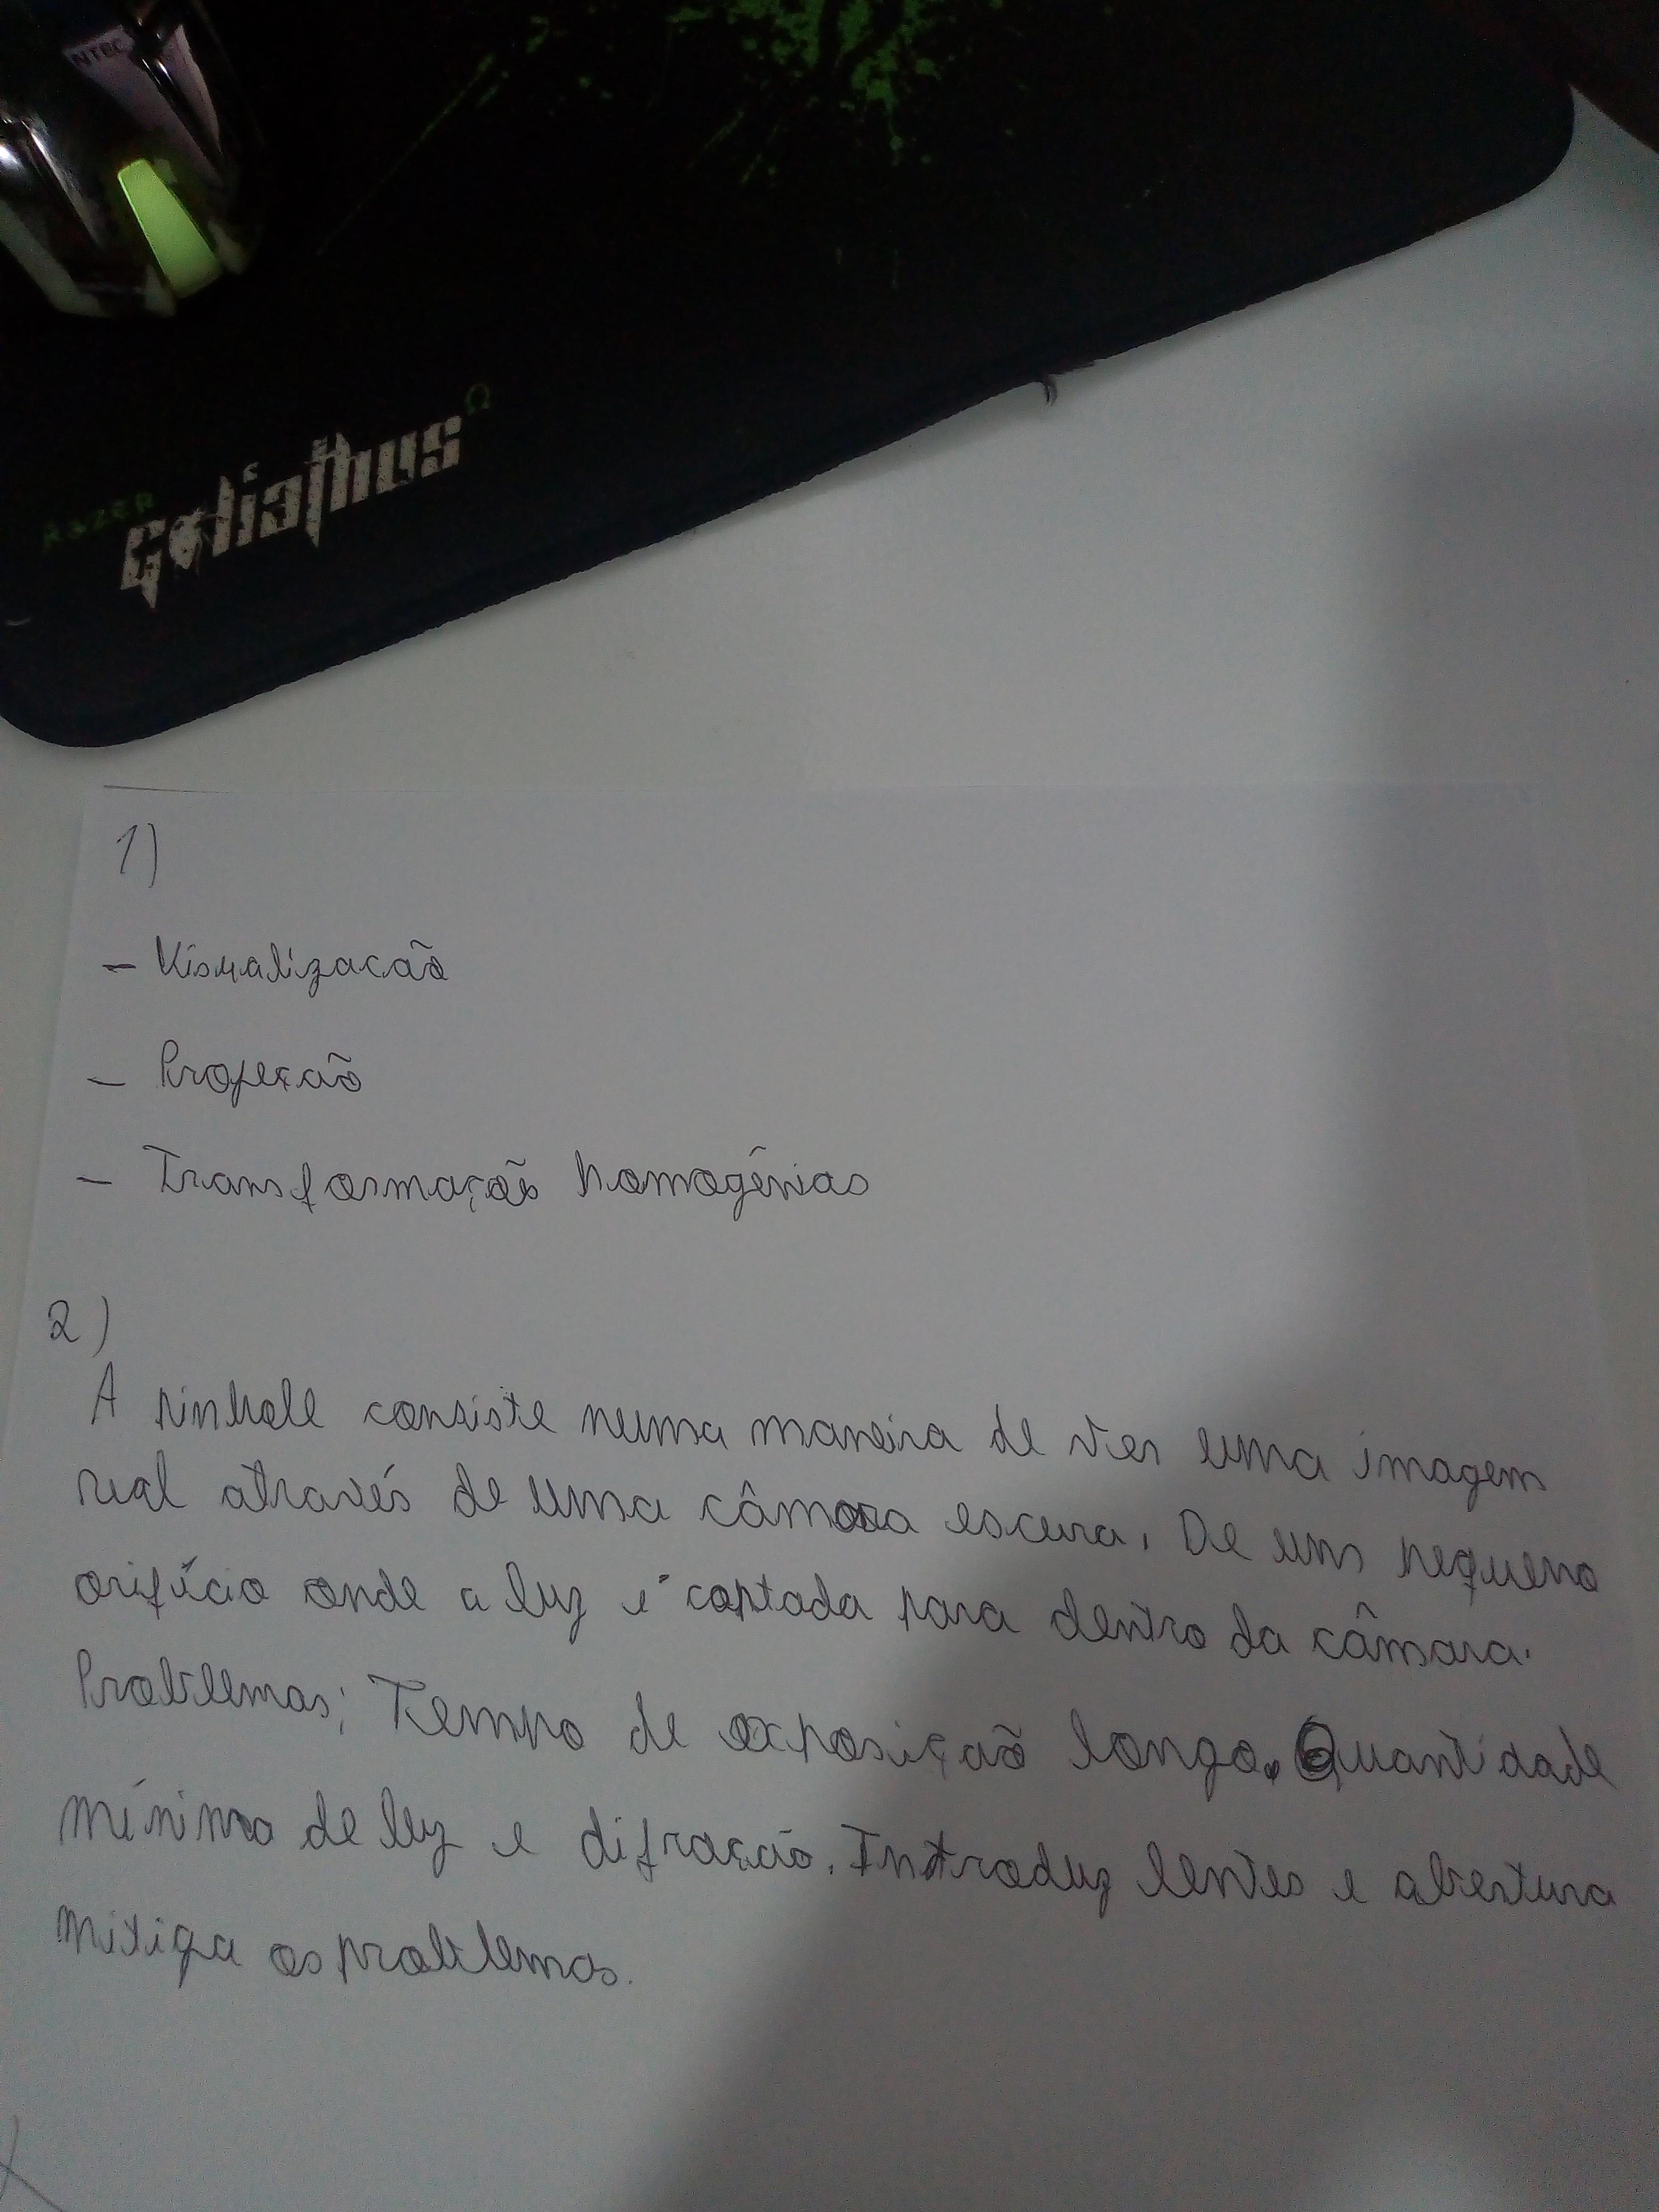 NTEC
RAZER
Goliathus
1)
- Visualizacão
- Projeção
- Transformação homogênias
2)
A pinhole consiste numa maneira de ver uma imagem
real através de uma câmara escura. De um pequeno
orifício onde a luz é captada para dentro da câmara.
Problemas: Tempo de exposição longo. Quantidade
mínima de luz e difração. Introduz lentes e abertura
mitiga os problemas.